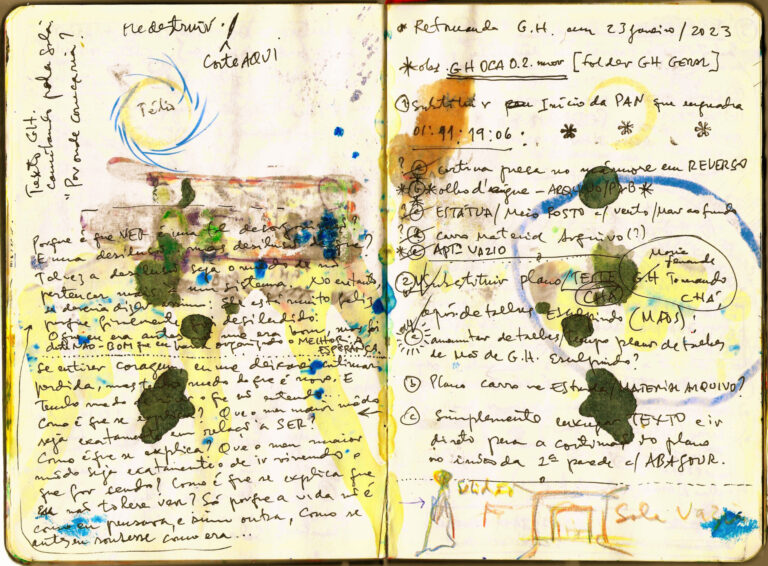 Me destruir.
Corte AQUI
Tédio
Texto GH.
caminhando pela sala
"Por onde começaria?
Porque é que VER é uma tal desorganização?
E uma desilusão. Mas desilusão de que?
Talvez a desilusão seja o medo de não
pertencer mais a um sistema. No entanto
se deveria dizer assim: ele está muito feliz
porque finalmente foi desiludido.
O que eu era antes não me era bom, mas foi
desse NÃO-BOM que eu havia organizado o MELHOR: a
ESPERANÇA
se entirer coragem, eu me deixarei continuar
perdida, mas tenho medo do que é novo. E
tenho medo de viver o que não entendo.
Como é que se explica? Que o meu maior medo
seja exatamente em relação a SER?
Como é que se explica? Que o meu maior
medo seja exatamente o de ir vivendo o
que for sendo? Como é que se explica que
eu não tolere ver? Só porque a vida não é
como eu pensava, e sim outra, como se
antes eu soubesse como era...
* Retomando G.H. em 23 janeiro/2023
* obs. GH OCA 0.2. mov [Folder GH GERAL]
① substituir Início da PAN que enquadra
01:41:19:06: * * *
? ⓐ cortina presa no mármore em REVERSO
* ⓑ * olho d'água – ARQUIVO/PAB *
? ⓒ ESTÁTUA/Meio ROSTO c/ vento/Mar ao fundo
? ⓓ carro Material Arquivo(?)
* ⓔ APTº VAZIO
② Substituir plano TESTE G.H Tomando
CHÁ
Maria Fernanda
CHÁ
após detalhes Esculpindo (MÃOS)
aumentar detalhes/tempo plano detalhes
de Mãos de G.H. Esculpindo?
ⓑ Plano carro na Estrada/MATERIAL ARQUIVO?
ⓒ Simplesmente enxugar TEXTO e ir
direto para a continuação do plano
no início da 2ª parede c/ ABAJOUR.
Sala Vazia